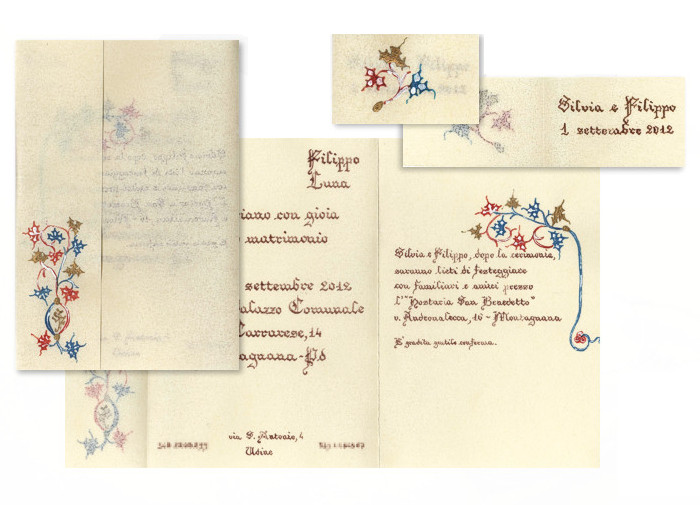 Silvia e Filippo
1 settembre 2012
Filippo
Luna
iano con gioia
matrimonio
settembre 2012
alazzo Comunale
Carrarese, 14
agnana-Pd
via S. Antonio, 4
Udine
Silvia e Filippo, dopo la cerimonia,
saranno lieti di festeggiare
con familiari e amici presso
l'"Hostaria San Benedetto"
v. Andronalecca, 16 - Montagnana
E' gradita gentile conferma.